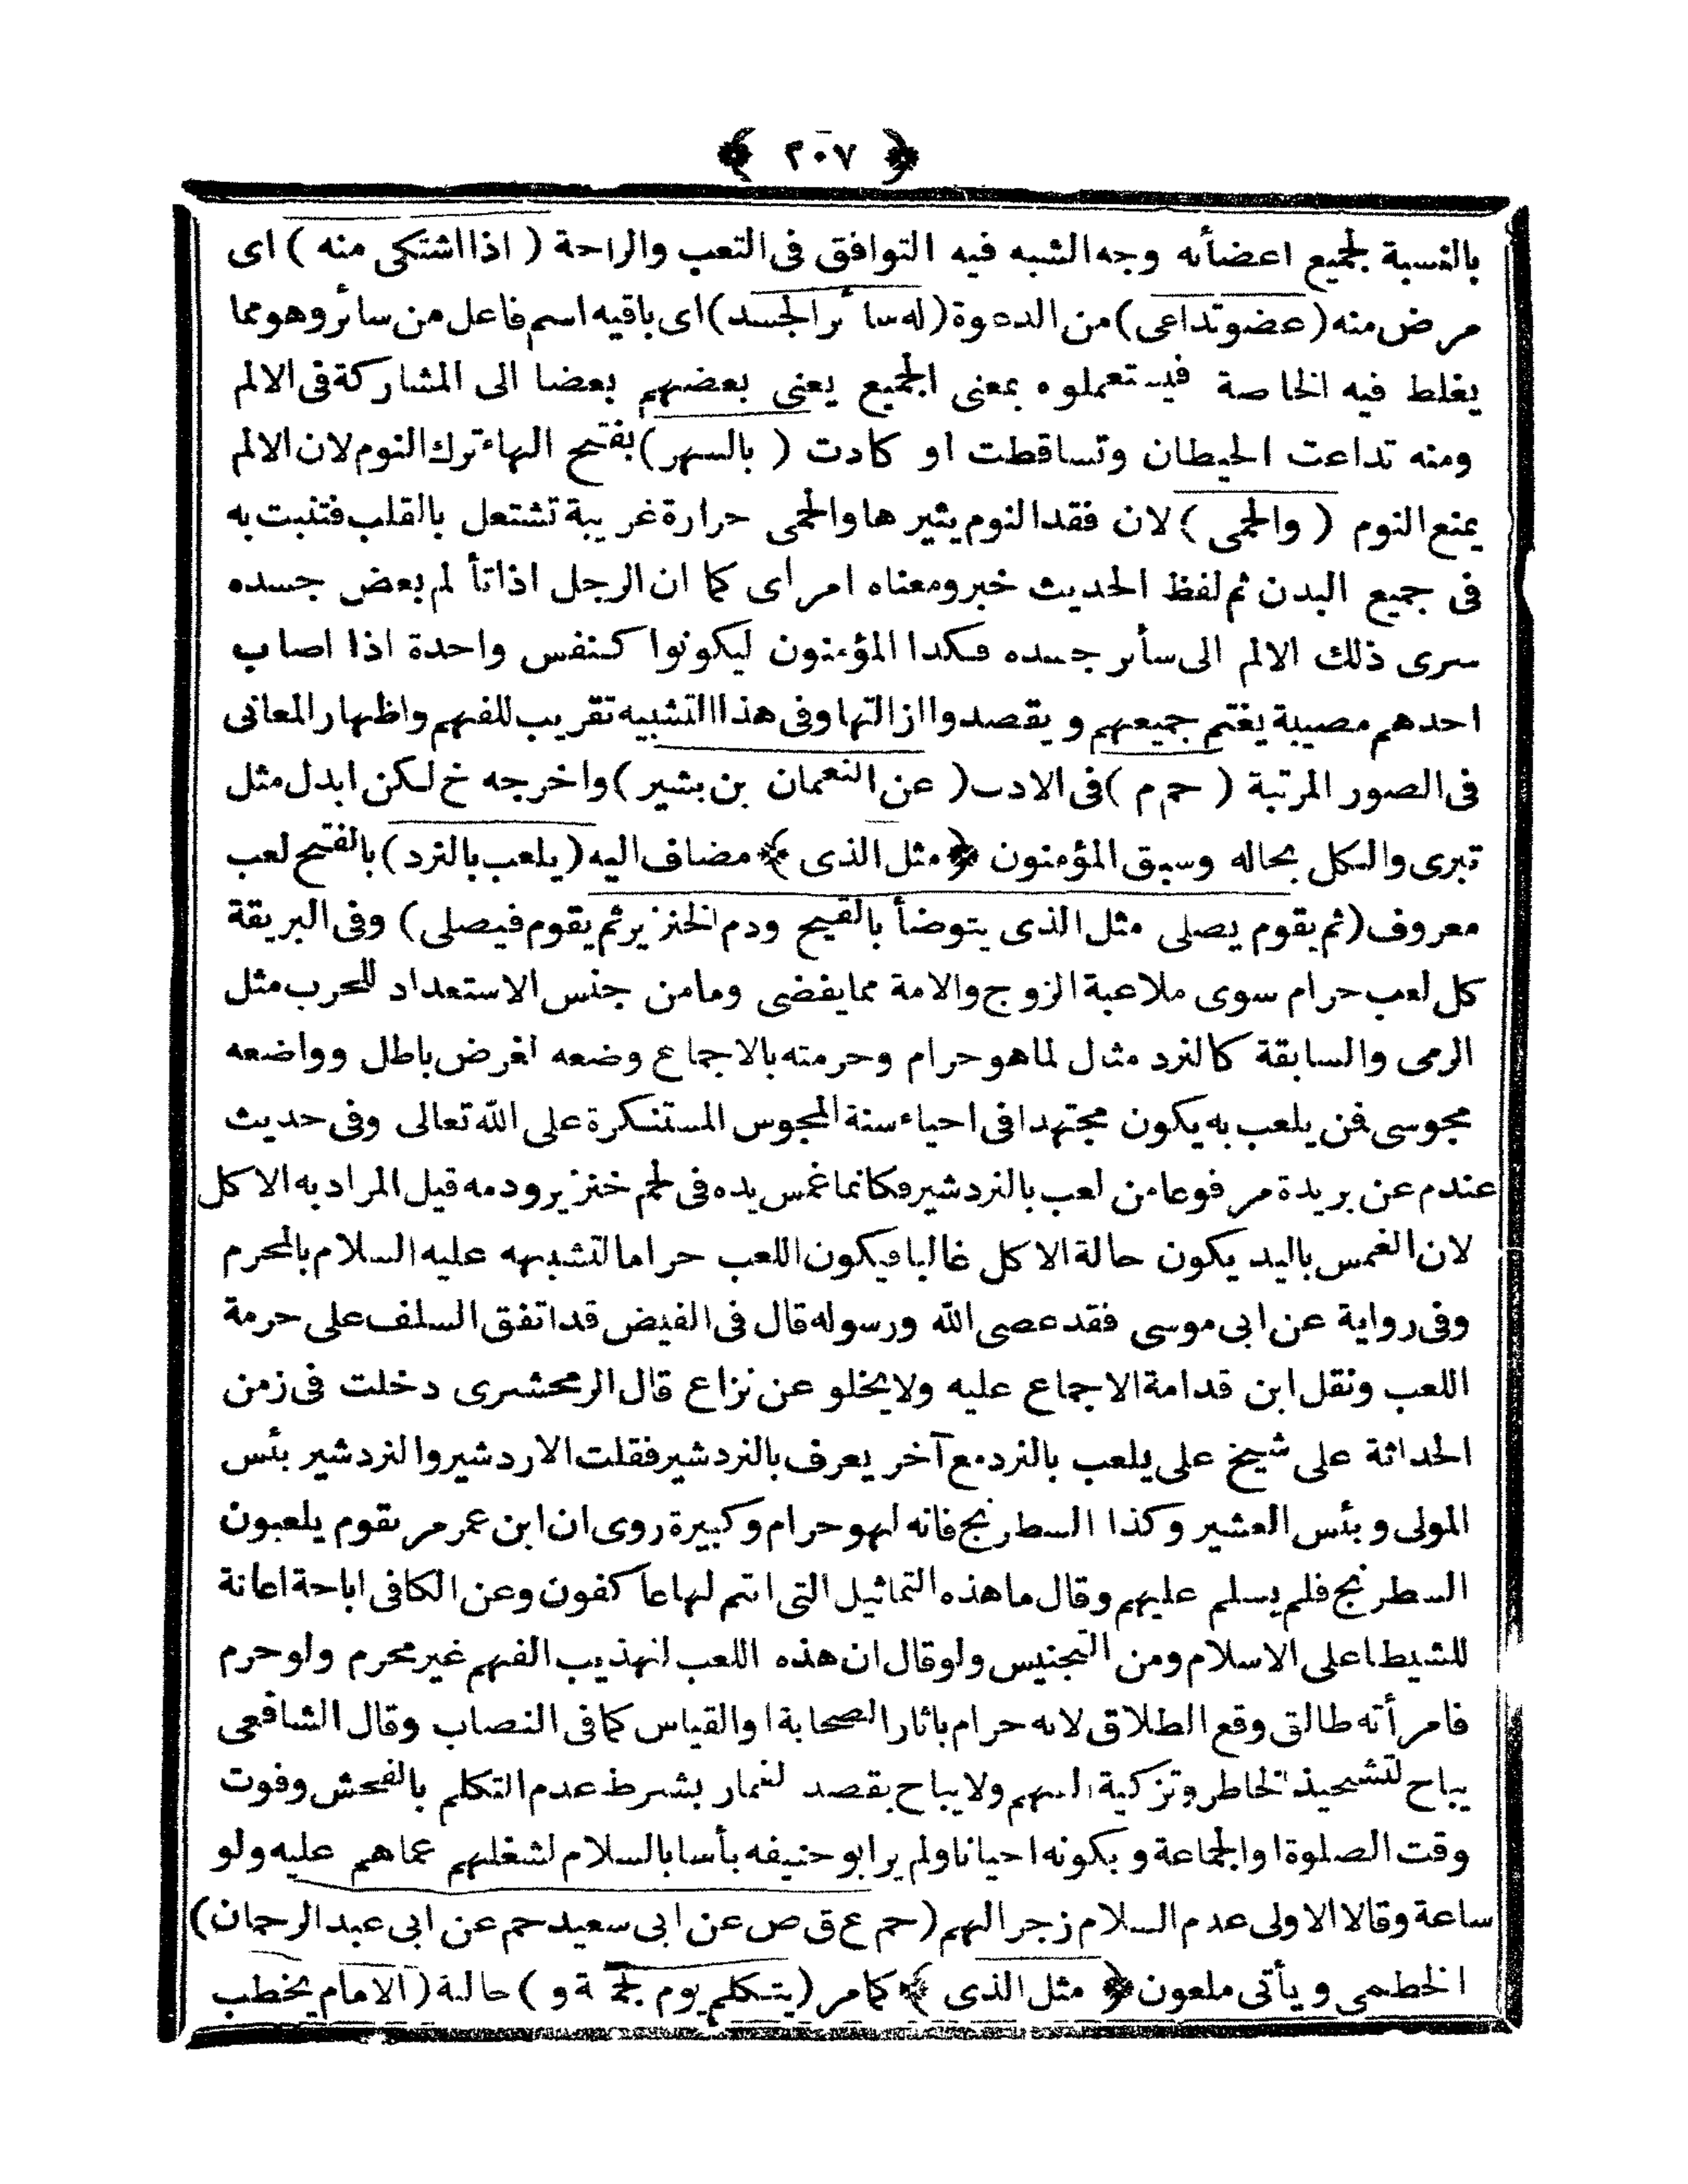 ﴿ ٢٠٧ ﴾
بالنسبة لجميع اعضائه وجه الشبه فيه التوافق فى التعب والراحة ( اذا اشتكى منه ) اى
مرض منه (عضو تداعى) من الدعوة (له سائر الجسد) اى باقيه اسم فاعل من سائر وهو مما
يغلط فيه الخاصة فيستعملوه بمعنى الجميع يعنى بعضهم بعضا الى المشاركة فى الالم
ومنه تداعت الحيطان وتساقطت او كادت ( بالسهر) بفتح الهاء ترك النوم لان الالم
يمنع النوم ( والحمى ) لان فقد النوم يثيرها والحمى حرارة غريبة تشتعل بالقلب فتنبت به
فى جميع البدن ثم لفظ الحديث خبر ومعناه امر أى كما ان الرجل اذا تألم بعض جسده
سرى ذلك الالم الى سائر جسده فكذا المؤمنون ليكونوا كنفس واحدة اذا اصاب
احدهم مصيبة يغتم جميعهم و يقصدوا ازالتها وفى هذا التشبيه تقريب للفهم واظهار المعانى
فى الصور المرتبة ( حم م ) فى الادب ( عن النعمان بن بشير ) واخرجه خ لكن ابدل مثل
تبرى والكل بحاله وسبق المؤمنون ﴿ مثل الذى ﴾ مضاف اليه (يلعب بالنرد) بالفتح لعب
معروف (ثم يقوم يصلى مثل الذى يتوضأ بالقيح ودم الخنزير ثم يقوم فيصلى) وفى البريقة
كل لعب حرام سوى ملاعبة الزوج والامة مما يفضى وما من جنس الاستعداد للحرب مثل
الرمى والسابقة كالنرد مثال لما هو حرام وحرمته بالاجماع وضعه لغرض باطل وواضعه
مجوسى فمن يلعب به يكون مجتهدا فى احياء سنة المجوس المستنكرة على الله تعالى وفى حديث
عندم عن بريدة مرفوعا من لعب بالنردشير فكانما غمس يده فى لحم خنزير ودمه قيل المراد به الاكل
لان الغمس باليد يكون حالة الاكل غالبا فيكون اللعب حراما لتشبيهه عليه السلام بالمحرم
وفى رواية عن ابى موسى فقد عصى الله ورسوله قال فى الفيض قد اتفق السلف على حرمة
اللعب ونقل ابن قدامة الاجماع عليه ولا يخلو عن نزاع قال الزمحشرى دخلت فى زمن
الحداثة على شيخ على يلعب بالنرد مع آخر يعرف بالنردشير فقلت الاردشير والنردشير بئس
المولى و بئس العشير وكذا السطرنج فانه لهو حرام وكبيرة روى ان ابن عمر مر بقوم يلعبون
السطرنج فلم يسلم عليهم وقال ما هذه التماثيل التى انتم لها عاكفون وعن الكافى اباحة اعانة
للشيطا على الاسلام ومن التجنيس ولو قال ان هذه اللعب لتهذيب الفهم غير محرم ولو حرم
فامرأته طالق وقع الطلاق لانه حرام باثار الصحابة او القياس كما فى النصاب وقال الشافعى
يباح لتشحيذ الخاطر وتزكية الفهم ولا يباح بقصد لقمار بشرط عدم التكلم بالفحش وفوت
وقت الصلوة او الجماعة و بكونه احيانا ولم ير ابو حنيفه بأسا بالسلام لشغلهم عما هم عليه ولو
ساعة وقالا الاولى عدم السلام زجرا لهم (حم ع ق ص عن ابى سعيد حم عن ابى عبد الرحمان)
الخطمى و يأتى ملعون ﴿ مثل الذى ﴾ كما مر (يتكلم يوم لجمة و ) حالة ( الامام يخطب